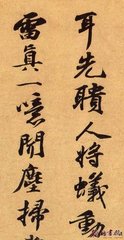 耳先聵人將蟻動
雷真一噫開塵掃